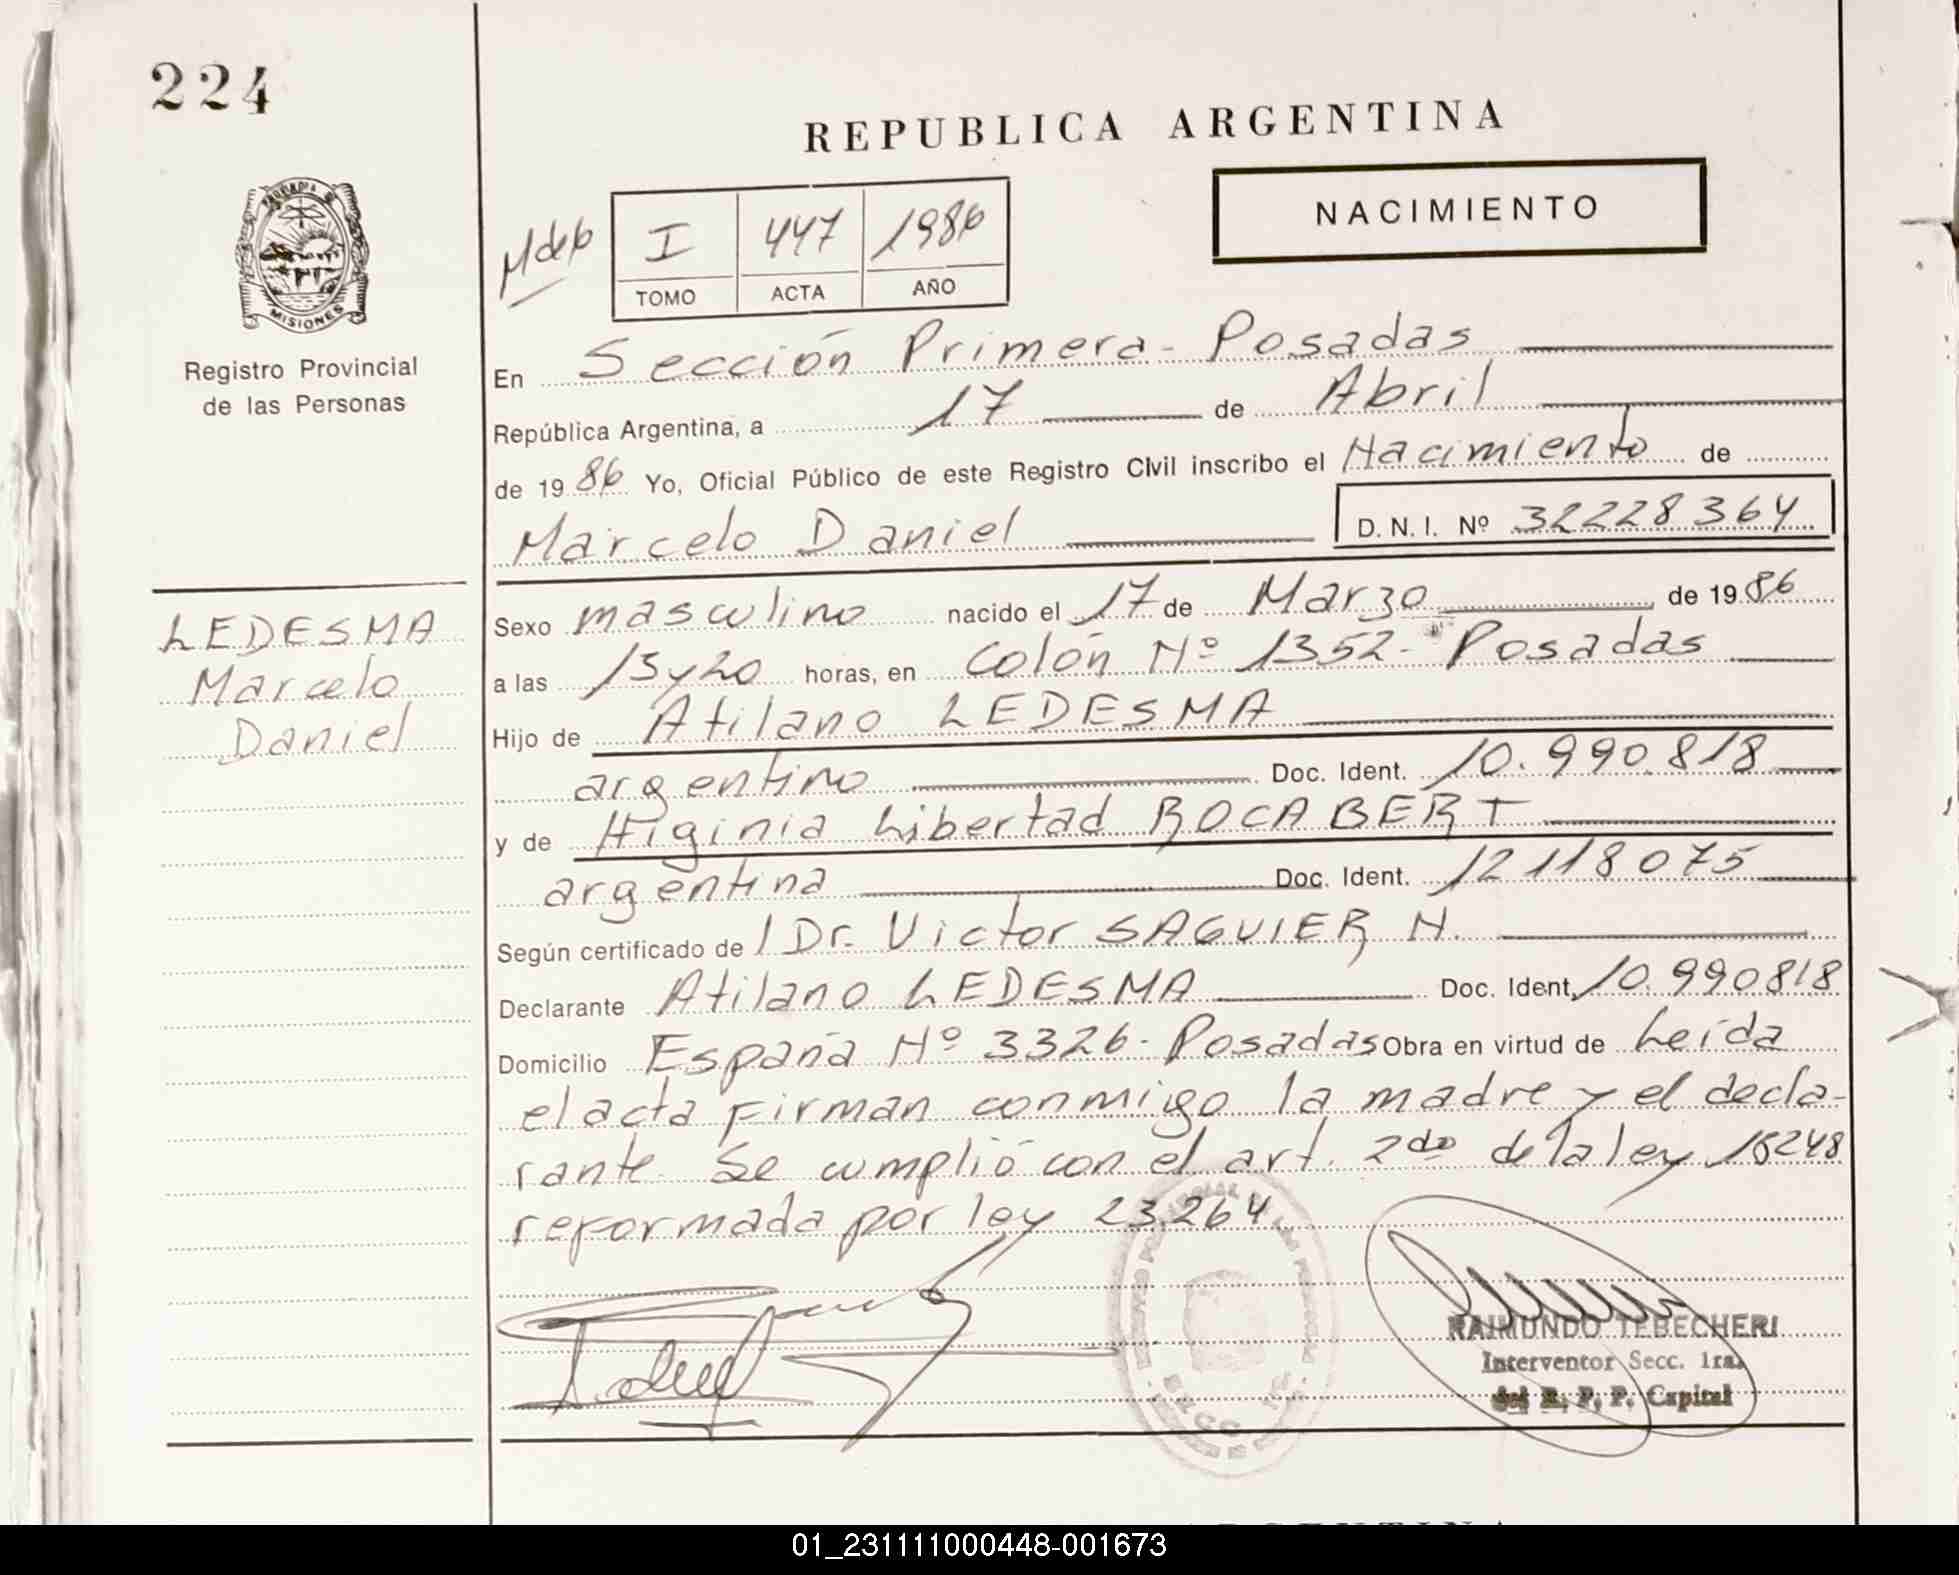 224
REPUBLICA ARGENTINA
NACIMIENTO
I 447 1986
TOMO ACTA AÑO
PROVINCIA DE
MISIONES
Registro Provincial
de las Personas
En Sección Primera - Posadas
República Argentina, a 17 de Abril
de 1986 Yo, Oficial Público de este Registro Civil inscribo el Nacimiento de
Marcelo Daniel D. N. I. Nº 32228364
LEDESMA
Marcelo
Daniel
Sexo masculino nacido el 17 de Marzo de 1986
a las 13y20 horas, en Colón Nº 1352 - Posadas
Hijo de Atilano LEDESMA
argentino Doc. Ident. 10.990.818
y de Higinia Libertad ROCABERT
argentina Doc. Ident. 12118075
Según certificado de Dr. Victor SAGUIER N.
Declarante Atilano LEDESMA Doc. Ident. 10.990818
Domicilio España Nº 3326 - Posadas Obra en virtud de Leída
el acta firman conmigo la madre y el decla-
rante. Se cumplió con el art. 2do de la ley 18248
reformada por ley 23.264
RAIMUNDO TEBECHERI
Interventor Secc. 1ra.
del R. P. P. Capital
01_231111000448-001673